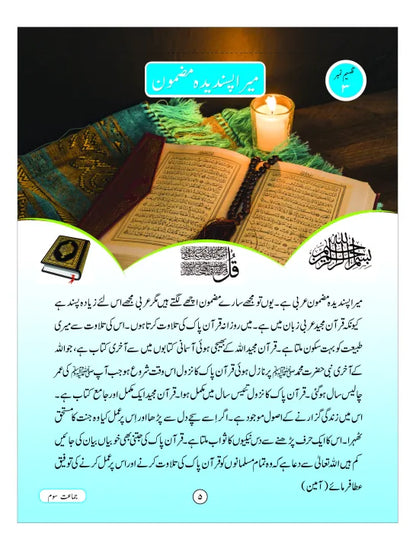 تفہیم نمبر
۳
میرا پسندیدہ مضمون
بسم اللہ الرحمٰن الرحیم
قُل
میرا پسندیدہ مضمون عربی ہے۔ یوں تو مجھے سارے مضمون اچھے لگتے ہیں مگر عربی مجھے اس لئے زیادہ پسند ہے
کیونکہ قرآن مجید عربی زبان میں ہے۔ میں روزانہ قرآن پاک کی تلاوت کرتا ہوں۔ اس کی تلاوت سے میری
طبیعت کو بہت سکون ملتا ہے۔ قرآن مجید اللہ کے بھیجی ہوئی آسمانی کتابوں میں سے آخری کتاب ہے، جو اللہ
کے آخری نبی حضرت محمد ﷺ پر نازل ہوئی قرآن پاک کا نزول اس وقت شروع ہو جب آپ ﷺ کی عمر
چالیس سال ہو گئی۔ قرآن پاک کا نزول تئیس سال میں مکمل ہوا۔ قرآن مجید ایک مکمل اور جامع کتاب ہے۔
اس میں زندگی گزارنے کے اصول موجود ہے۔ اگر اسے سچے دل سے پڑھا اور اس پر عمل کیا وہ جنت کا مستحق
ٹھہرا۔ اس کا ایک حرف پڑھنے سے دس نیکیوں کا ثواب ملتا ہے۔ قرآن پاک کی جتنی بھی خوبیاں بیان کی جائیں
کم ہیں اللہ تعالیٰ سے دعا ہے کہ وہ تمام مسلمانوں کو قرآن پاک کی تلاوت کرنے اور اس پر عمل کرنے کی توفیق
عطا فرمائے (آمین)
۵
جماعت سوم